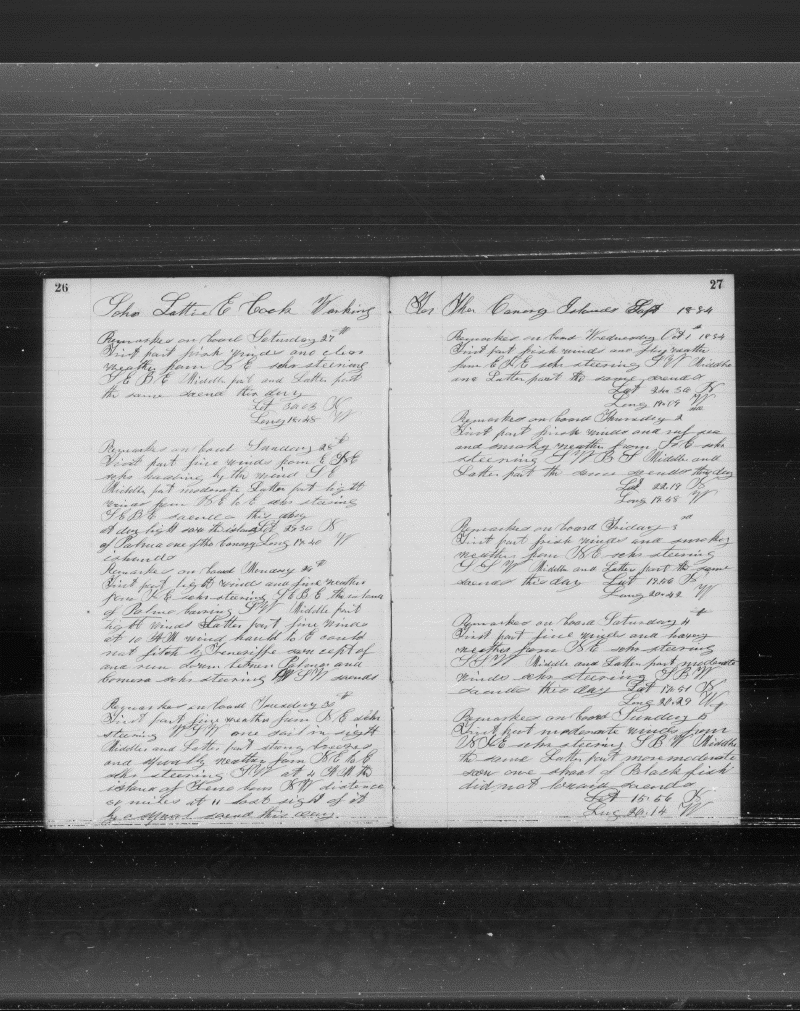 26
Schr Lottie E Cook Working
Remarkes on bord Saturday 27th
First part frish winds and clear
weather from N E schr steering
S E B E Middle part and Latter part
the same soend this day
Lat 30.03 N
Long 18.48 W
Remarkes on bord Sunday 28th
First part fine winds from E
schr heading by the wind S E
Middle part moderate Latter part light
winds from N E schr staring
S E B E soendes this day
at day light saw the island Lat 29.30 N
of Palma one of the Canary Long 18.40 W
islands
Remarkes on bord Monday 29th
First part light winds and fine weather
from N E schr steering S E B E the island
of Palma baring S W Middle part
light winds Latter part fine winds
at 10 A M wind hauld to E could
not fitch by Teneriffe
and run down between Palma and
Gomera schr steering W S W soends
Remarkes on bord Tuesday 30th
First part fine weather from N E schr
steering W S W one sail in sight
Middle and Latter part strong breeses
and squally weather from N E
schr steering S W at 4 A M the
island of Ferro bore N W distence
miles at 11 lost sight of it
soend this day.
27
For Ther Canary Islands Sept 1884
Remarkes on bord Wednesday Oct 1st 1884
First part frish winds and foggy weather
from E N E schr steering S W Middle
and Latter part the same soends
Lat 24.50 N
Long 19.19 W
Remarkes on bord Thursday 2nd
First part frish winds and ruf sea
and smoky weather from N E schr
steering S W B S Middle and
Latter part the same soends this day
Lat 22.19 N
Long 19.58 W
Remarkes on bord Friday 3rd
First part frish winds and smokey
weather from N E schr steering
S S W Middle and Latter part the same
soends this day Lat 19.56 N
Long 20.42 W
Remarkes on bord Saturday 4th
First part fine winds and haysy
weather from N E schr steering
S S W Middle and Latter part moderate
winds schr steering S B W
soends this day Lat 17.51 N
Long 20.29 W
Remarkes on bord Sunday 5
First part moderate winds from
N N E schr steering S B W Middle
the same Latter part more moderate
saw one shoal of Black fish
did not lower soends
Lat 15.56 N
Long 20.14 W